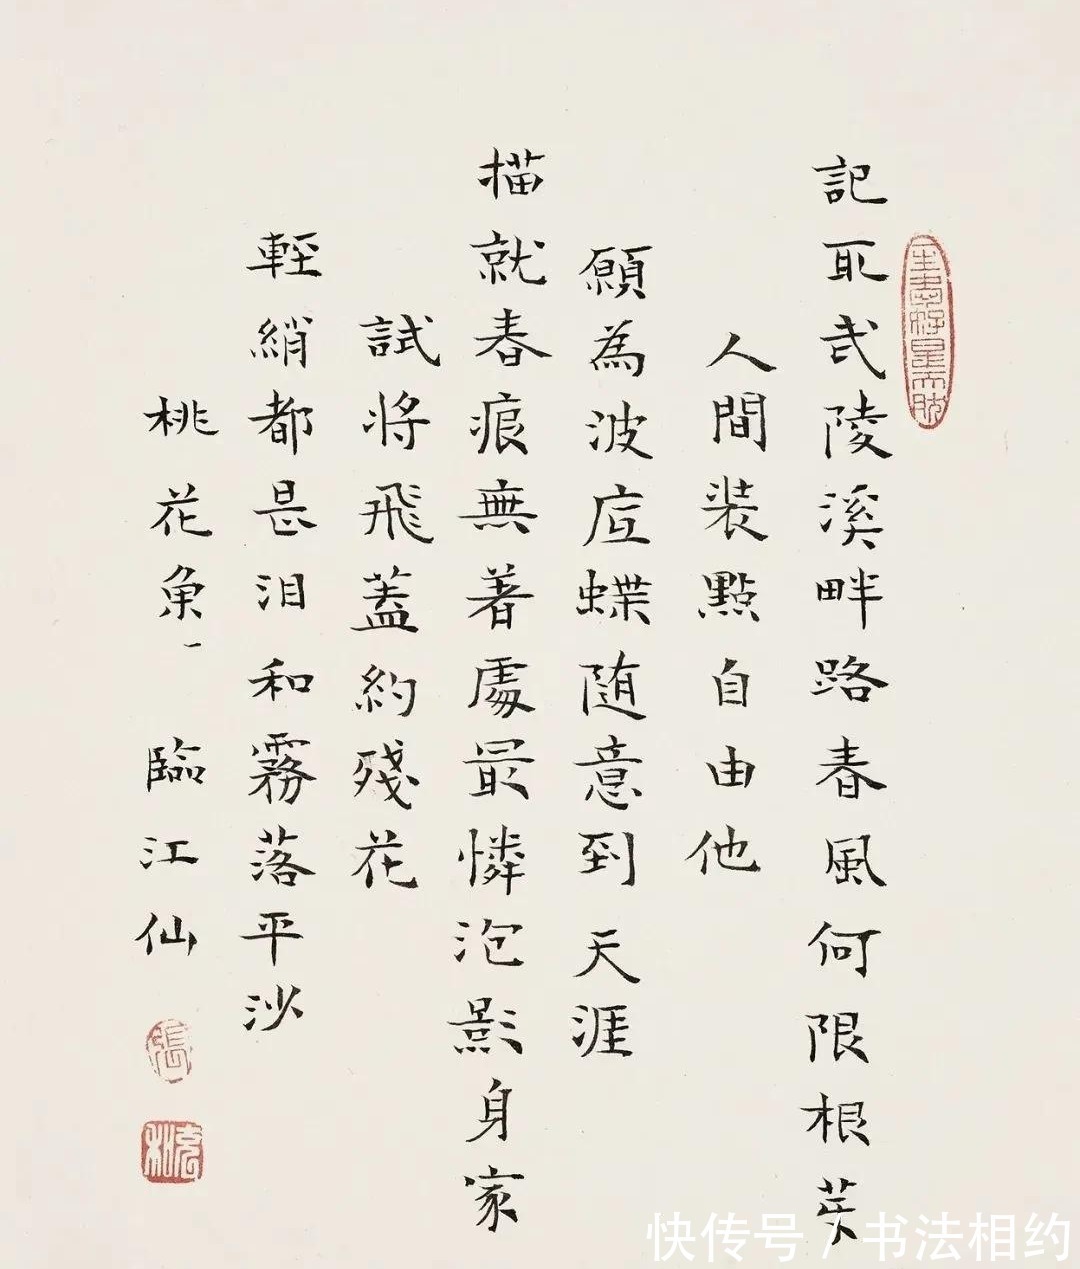 記取武陵溪畔路春風何限根芽
人間裝點自由他
願為波底蝶随意到天涯
描就春痕無著處最憐泡影身家
試將飛蓋約殘花
輕綃都是泪和霧落平沙
桃花魚 臨江仙
張
充和
快传号 / 书法相约